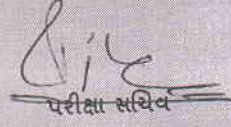 પરીક્ષા સચિવ